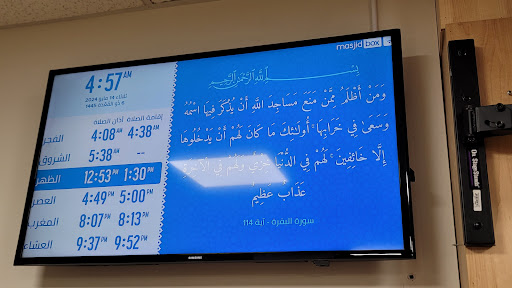 masjid box
4:57 AM
ثلاثاء 14 مايو 2024
6 ذو القعدة 1445
أذان الصلاة إقامة الصلاة
الفجر 4:08 AM 4:38 AM
الشروق 5:38 AM --
الظهر 12:53 PM 1:30 PM
العصر 4:49 PM 5:00 PM
المغرب 8:07 PM 8:13 PM
العشاء 9:37 PM 9:52 PM
بِسْمِ اللَّهِ الرَّحْمَٰنِ الرَّحِيمِ
وَمَنْ أَظْلَمُ مِمَّنْ مَنَعَ مَسَاجِدَ اللَّهِ أَنْ يُذْكَرَ فِيهَا اسْمُهُ
وَسَعَىٰ فِي خَرَابِهَا ۚ أُولَٰئِكَ مَا كَانَ لَهُمْ أَنْ يَدْخُلُوهَا
إِلَّا خَائِفِينَ ۚ لَهُمْ فِي الدُّنْيَا خِزْيٌ وَلَهُمْ فِي الْآخِرَةِ
عَذَابٌ عَظِيمٌ
سورة البقرة - آية 114
SAMSUNG